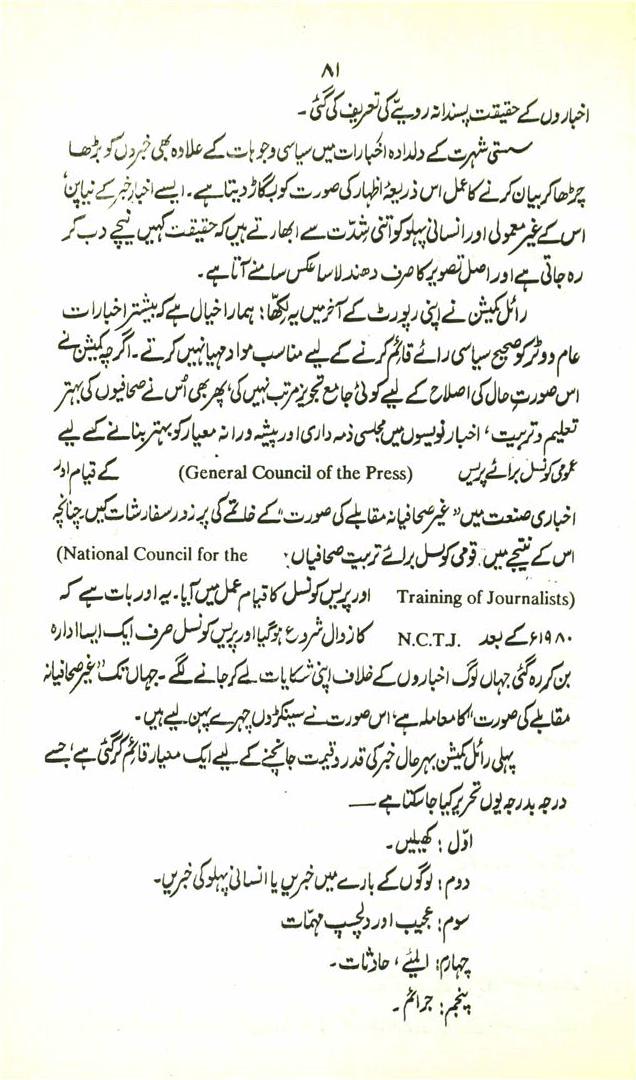 ۸۱
اخباروں کے حقیقت پسندانہ رویے کی تعریف کی گئی۔
سستی شہرت کے دلدادہ اخبارات میں سیاسی وجوہات کے علاوہ بھی خبروں کو بڑھا
چڑھا کر بیان کرنے کا عمل اس ذریعۂ اظہار کی صورت کو بگاڑ دیتا ہے۔ ایسے اخبار خبر کے نیا پن،
اس کے غیر معمولی اور انسانی پہلو کو اتنی شدّت سے ابھارتے ہیں کہ حقیقت کہیں نیچے دب کر
رہ جاتی ہے اور اصل تصویر کا صرف دھندلا سا عکس سامنے آتا ہے۔
رائل کمیشن نے اپنی رپورٹ کے آخر میں یہ لکھا: ہمارا خیال ہے کہ بیشتر اخبارات
عام ووٹر کو صحیح سیاسی رائے قائم کرنے کے لیے مناسب مواد مہیا نہیں کرتے۔ اگرچہ کمیشن نے
اس صورتِ حال کی اصلاح کے لیے کوئی جامع تجویز مرتب نہیں کی، پھر بھی اُس نے صحافیوں کی بہتر
تعلیم و تربیت، اخبار نویسوں میں مجلسی ذمہ داری اور پیشہ ورانہ معیار کو بہتر بنانے کے لیے
عمومی کونسل برائے پریس (General Council of the Press) کے قیام اور
اخباری صنعت میں "غیر صحافیانہ مقابلے کی صورت" کے خاتمے کی پر زور سفارشات کیں۔ چنانچہ
اس کے نتیجے میں قومی کونسل برائے تربیت صحافیاں، (National Council for the
Training of Journalists) اور پریس کونسل کا قیام عمل میں آیا۔ یہ اور بات ہے کہ
۱۹۸۰ء کے بعد N.C.T.J. کا زوال شروع ہو گیا اور پریس کونسل صرف ایک ایسا ادارہ
بن کر رہ گئی جہاں لوگ اخباروں کے خلاف اپنی شکایات لے کر جانے لگے۔ جہاں تک "غیر صحافیانہ
مقابلے کی صورت" کا معاملہ ہے، اس صورت نے سینکڑوں چہرے پہن لیے ہیں۔
پہلی رائل کمیشن بہر حال خبر کی قدر و قیمت جانچنے کے لیے ایک معیار قائم کر گئی ہے، جسے
درجہ بدرجہ یوں تحریر کیا جا سکتا ہے —
اوّل: کھیلیں۔
دوم: لوگوں کے بارے میں خبریں یا انسانی پہلو کی خبریں۔
سوم: عجیب اور دلچسپ مہمّات
چہارم: المیے، حادثات۔
پنجم: جرائم۔